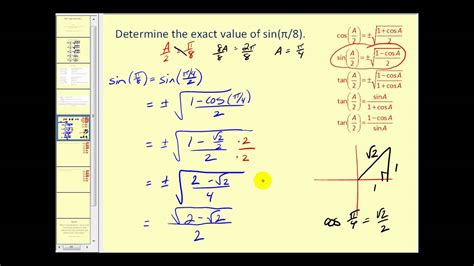 Determine the exact value of sin(π/8).
A/2 = π/8   8A/8 = 2π/8   A = π/4
sin(π/8) = sin((π/4)/2)
= ±√((1 - cos(π/4))/2)
= ±√((1 - √2/2)/2 · 2/· 2)
= ±√((2 - √2)/4)
= √(2 - √2)/2
cos(A/2) = ±√((1+cosA)/2)
sin(A/2) = ±√((1−cosA)/2)
tan(A/2) = ±√((1−cosA)/(1+cosA))
tan(A/2) = sinA/(1+cosA)
tan(A/2) = (1−cosA)/sinA
√2
1
1
cos π/4 = √2/2